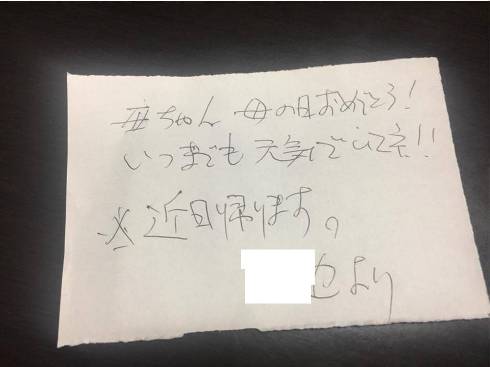 母ちゃん 母の日おめでとう!
いつまでも天気でいてネ!!
※近日帰ります。
也より